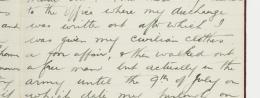 to the office where my discharge
was written out after which I
and was given my civilian clothes
a fair affair, & then walked out
a free man but actually in the
army until the 9th of July on
which date my furlough on